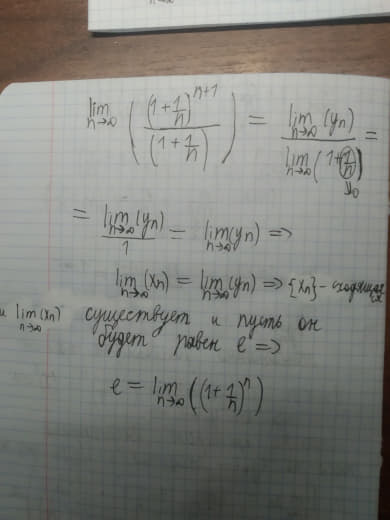 lim n→∞ ( (1+1/n)^(n+1) / (1+1/n) ) = lim n→∞ (yn) / lim n→∞ (1+1/n) =
↓0
= lim n→∞ (yn) / 1 = lim n→∞ (yn) ⇒
lim n→∞ (xn) = lim n→∞ (yn) ⇒ {xn} - сходящаяся
и lim n→∞ (xn) существует и пусть он
будет равен e ⇒
e = lim n→∞ ((1+1/n)^n)